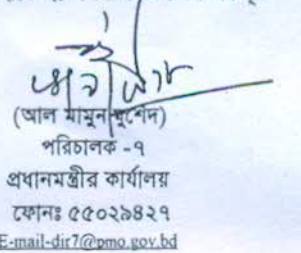 (আল মামুন মুর্শেদ)
পরিচালক -৭
প্রধানমন্ত্রীর কার্যালয়
ফোনঃ ৫৫০২৯৪২৭
E-mail-dir7@pmo.gov.bd